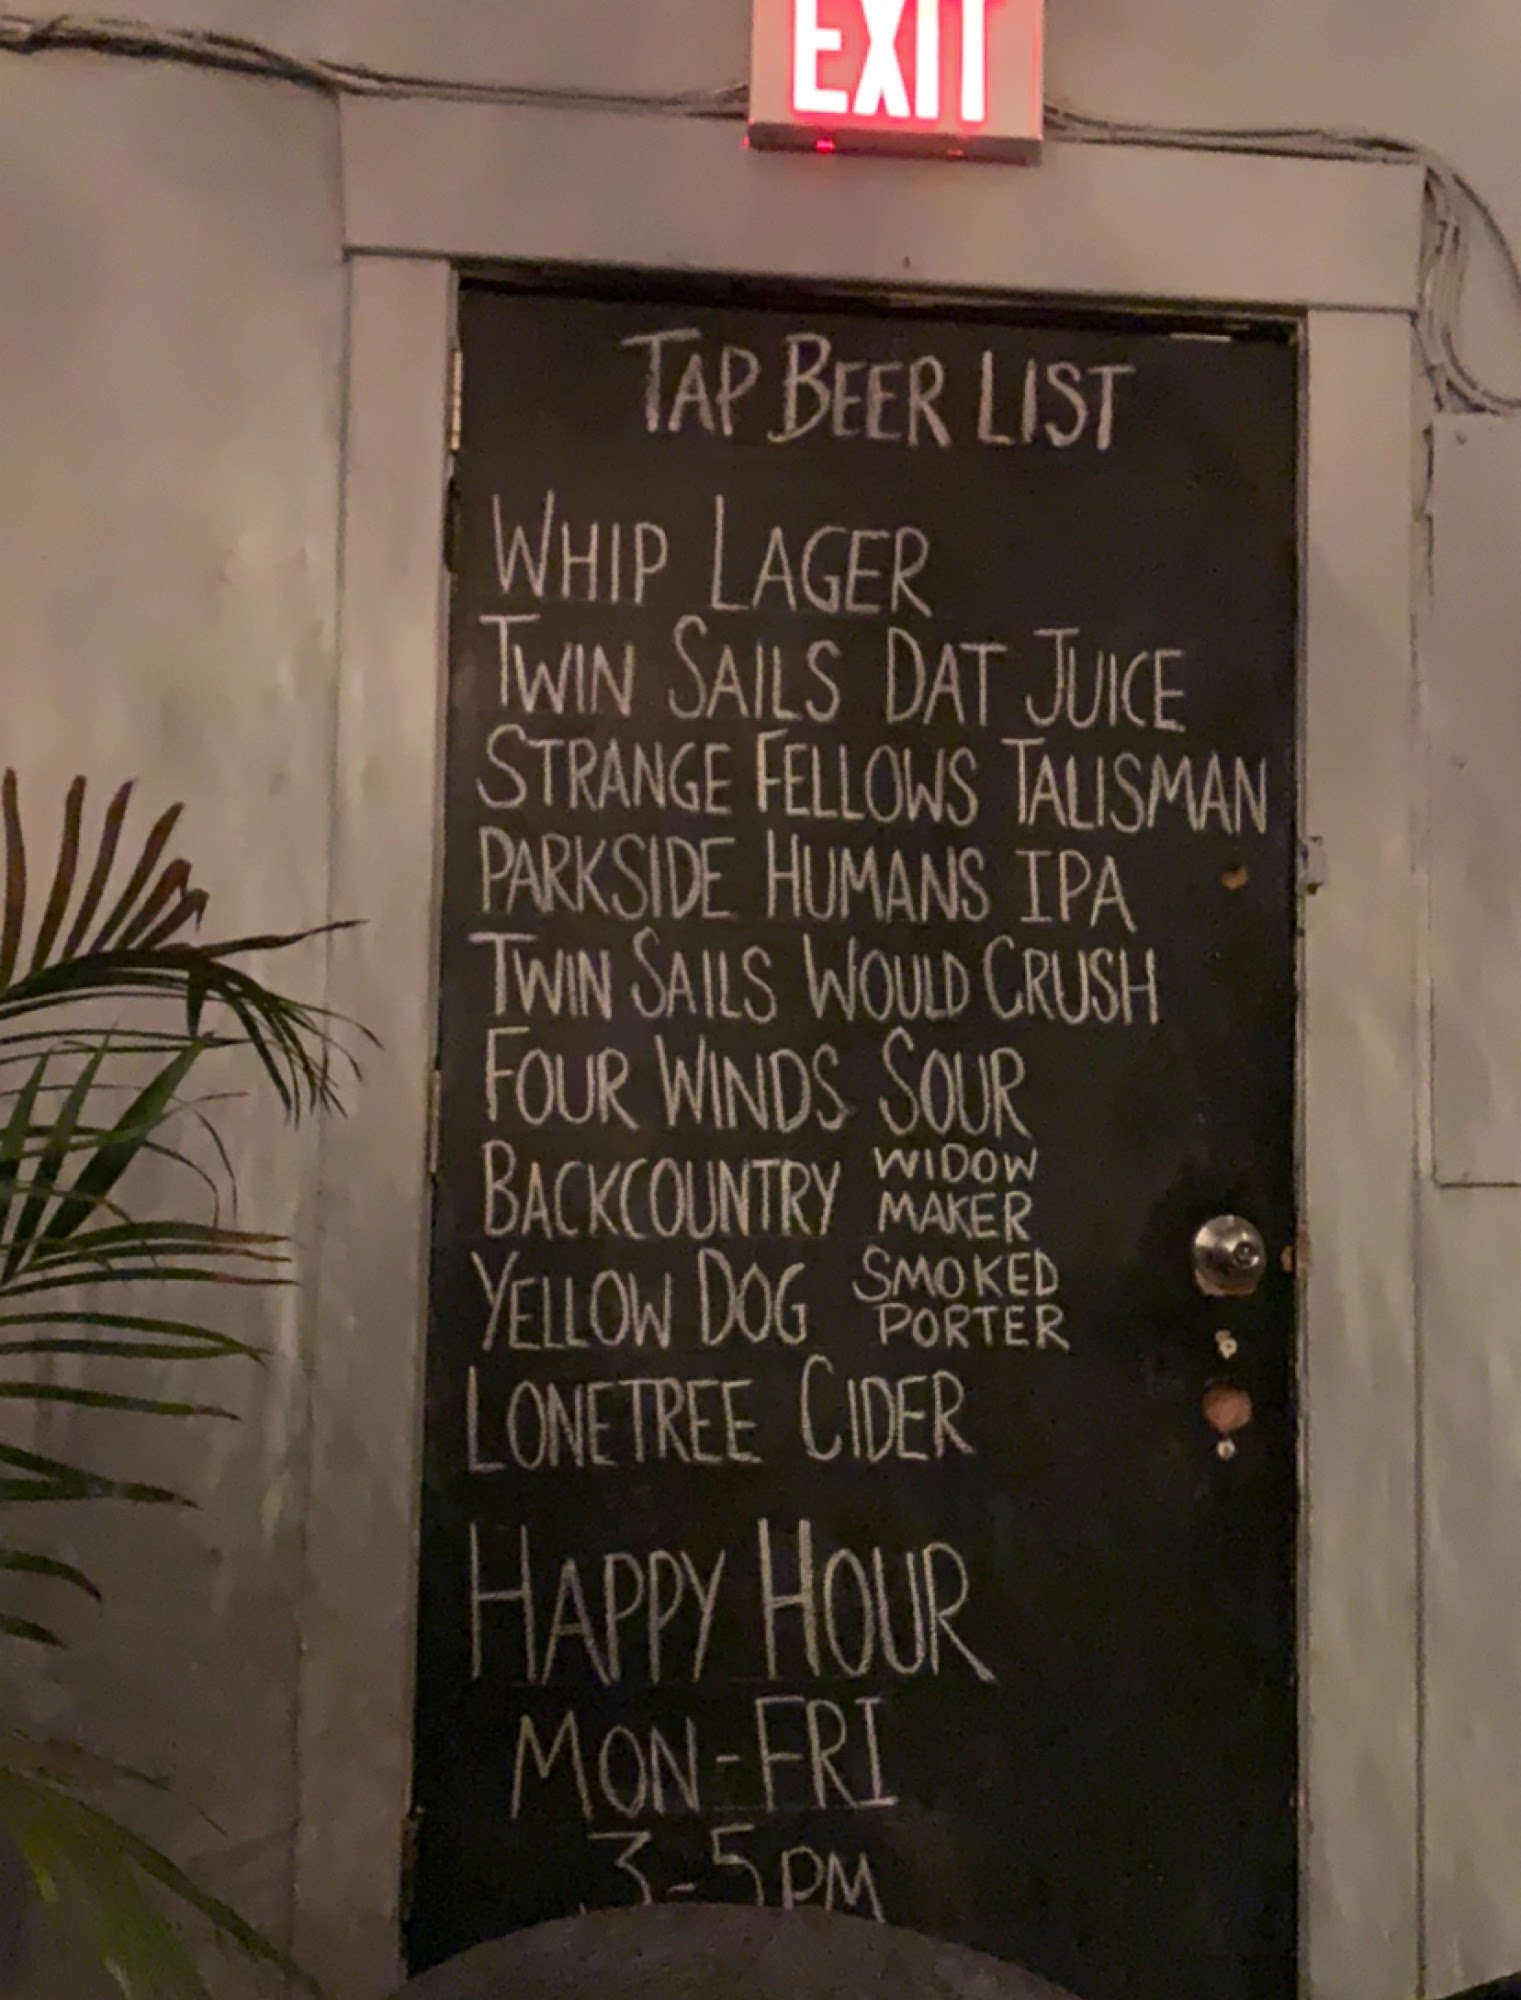 EXIT
TAP BEER LIST
WHIP LAGER
TWIN SAILS DAT JUICE
STRANGE FELLOWS TALISMAN
PARKSIDE HUMANS IPA
TWIN SAILS WOULD CRUSH
FOUR WINDS SOUR
BACKCOUNTRY WIDOW
MAKER
YELLOW DOG SMOKED
PORTER
LONETREE CIDER
HAPPY HOUR
MON-FRI
3-5PM